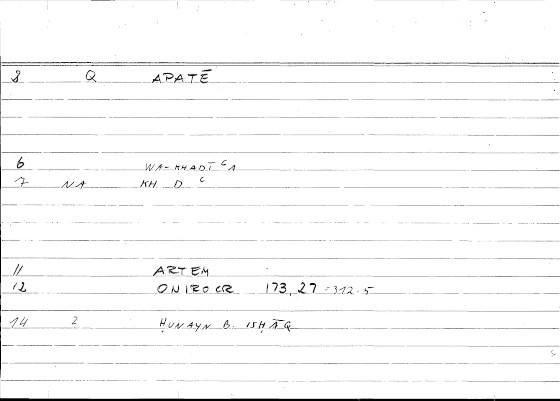 8 Q APATĒ
6 WA-KHADĪ ʿA
7 NA KH D ʿ
11 ARTEM
12 ONIROCR 173,27 = 312.5
14 2 ḤUNAYN B. ISḤĀQ